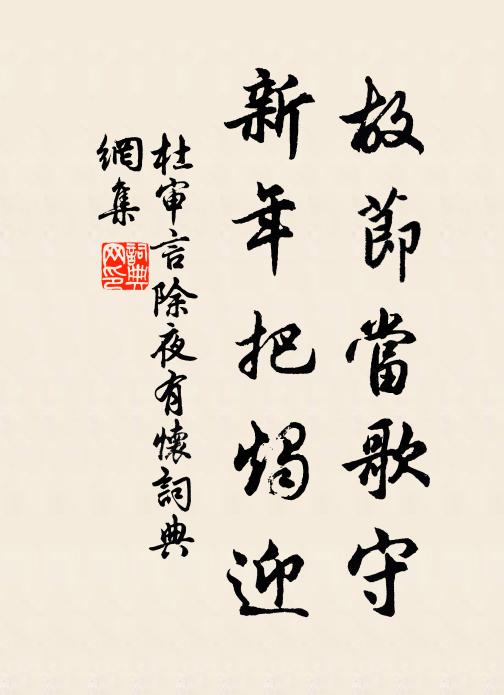 故節當歌守
新年把燭迎
杜審言除夜有懷詞典
網集
詞典
网印